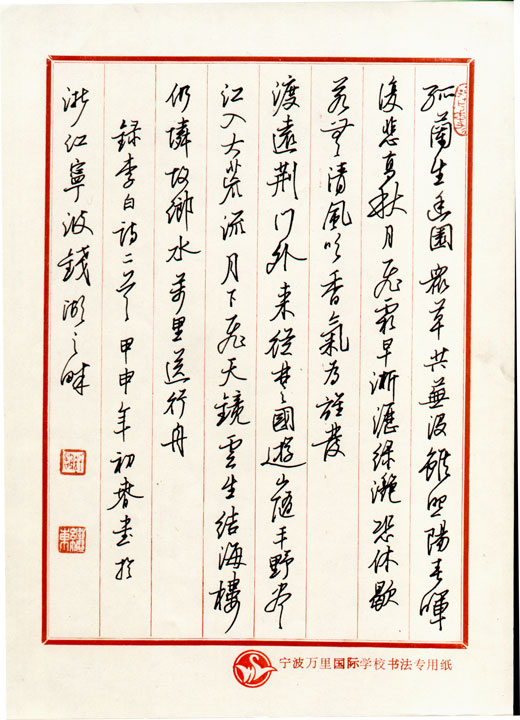 孤蘭生幽園衆草共蕪沒雖照陽春暉
復悲高秋月飛霜早淅瀝綠灧恐休歇
若無清風吹香氣為誰發
渡遠荊門外來從楚國遊山隨平野盡
江入大荒流月下飛天鏡雲生結海樓
仍憐故鄉水萬里送行舟
録李白詩二首甲申年初春書於
浙江寧波錢湖之畔
宁波万里国际学校书法专用纸